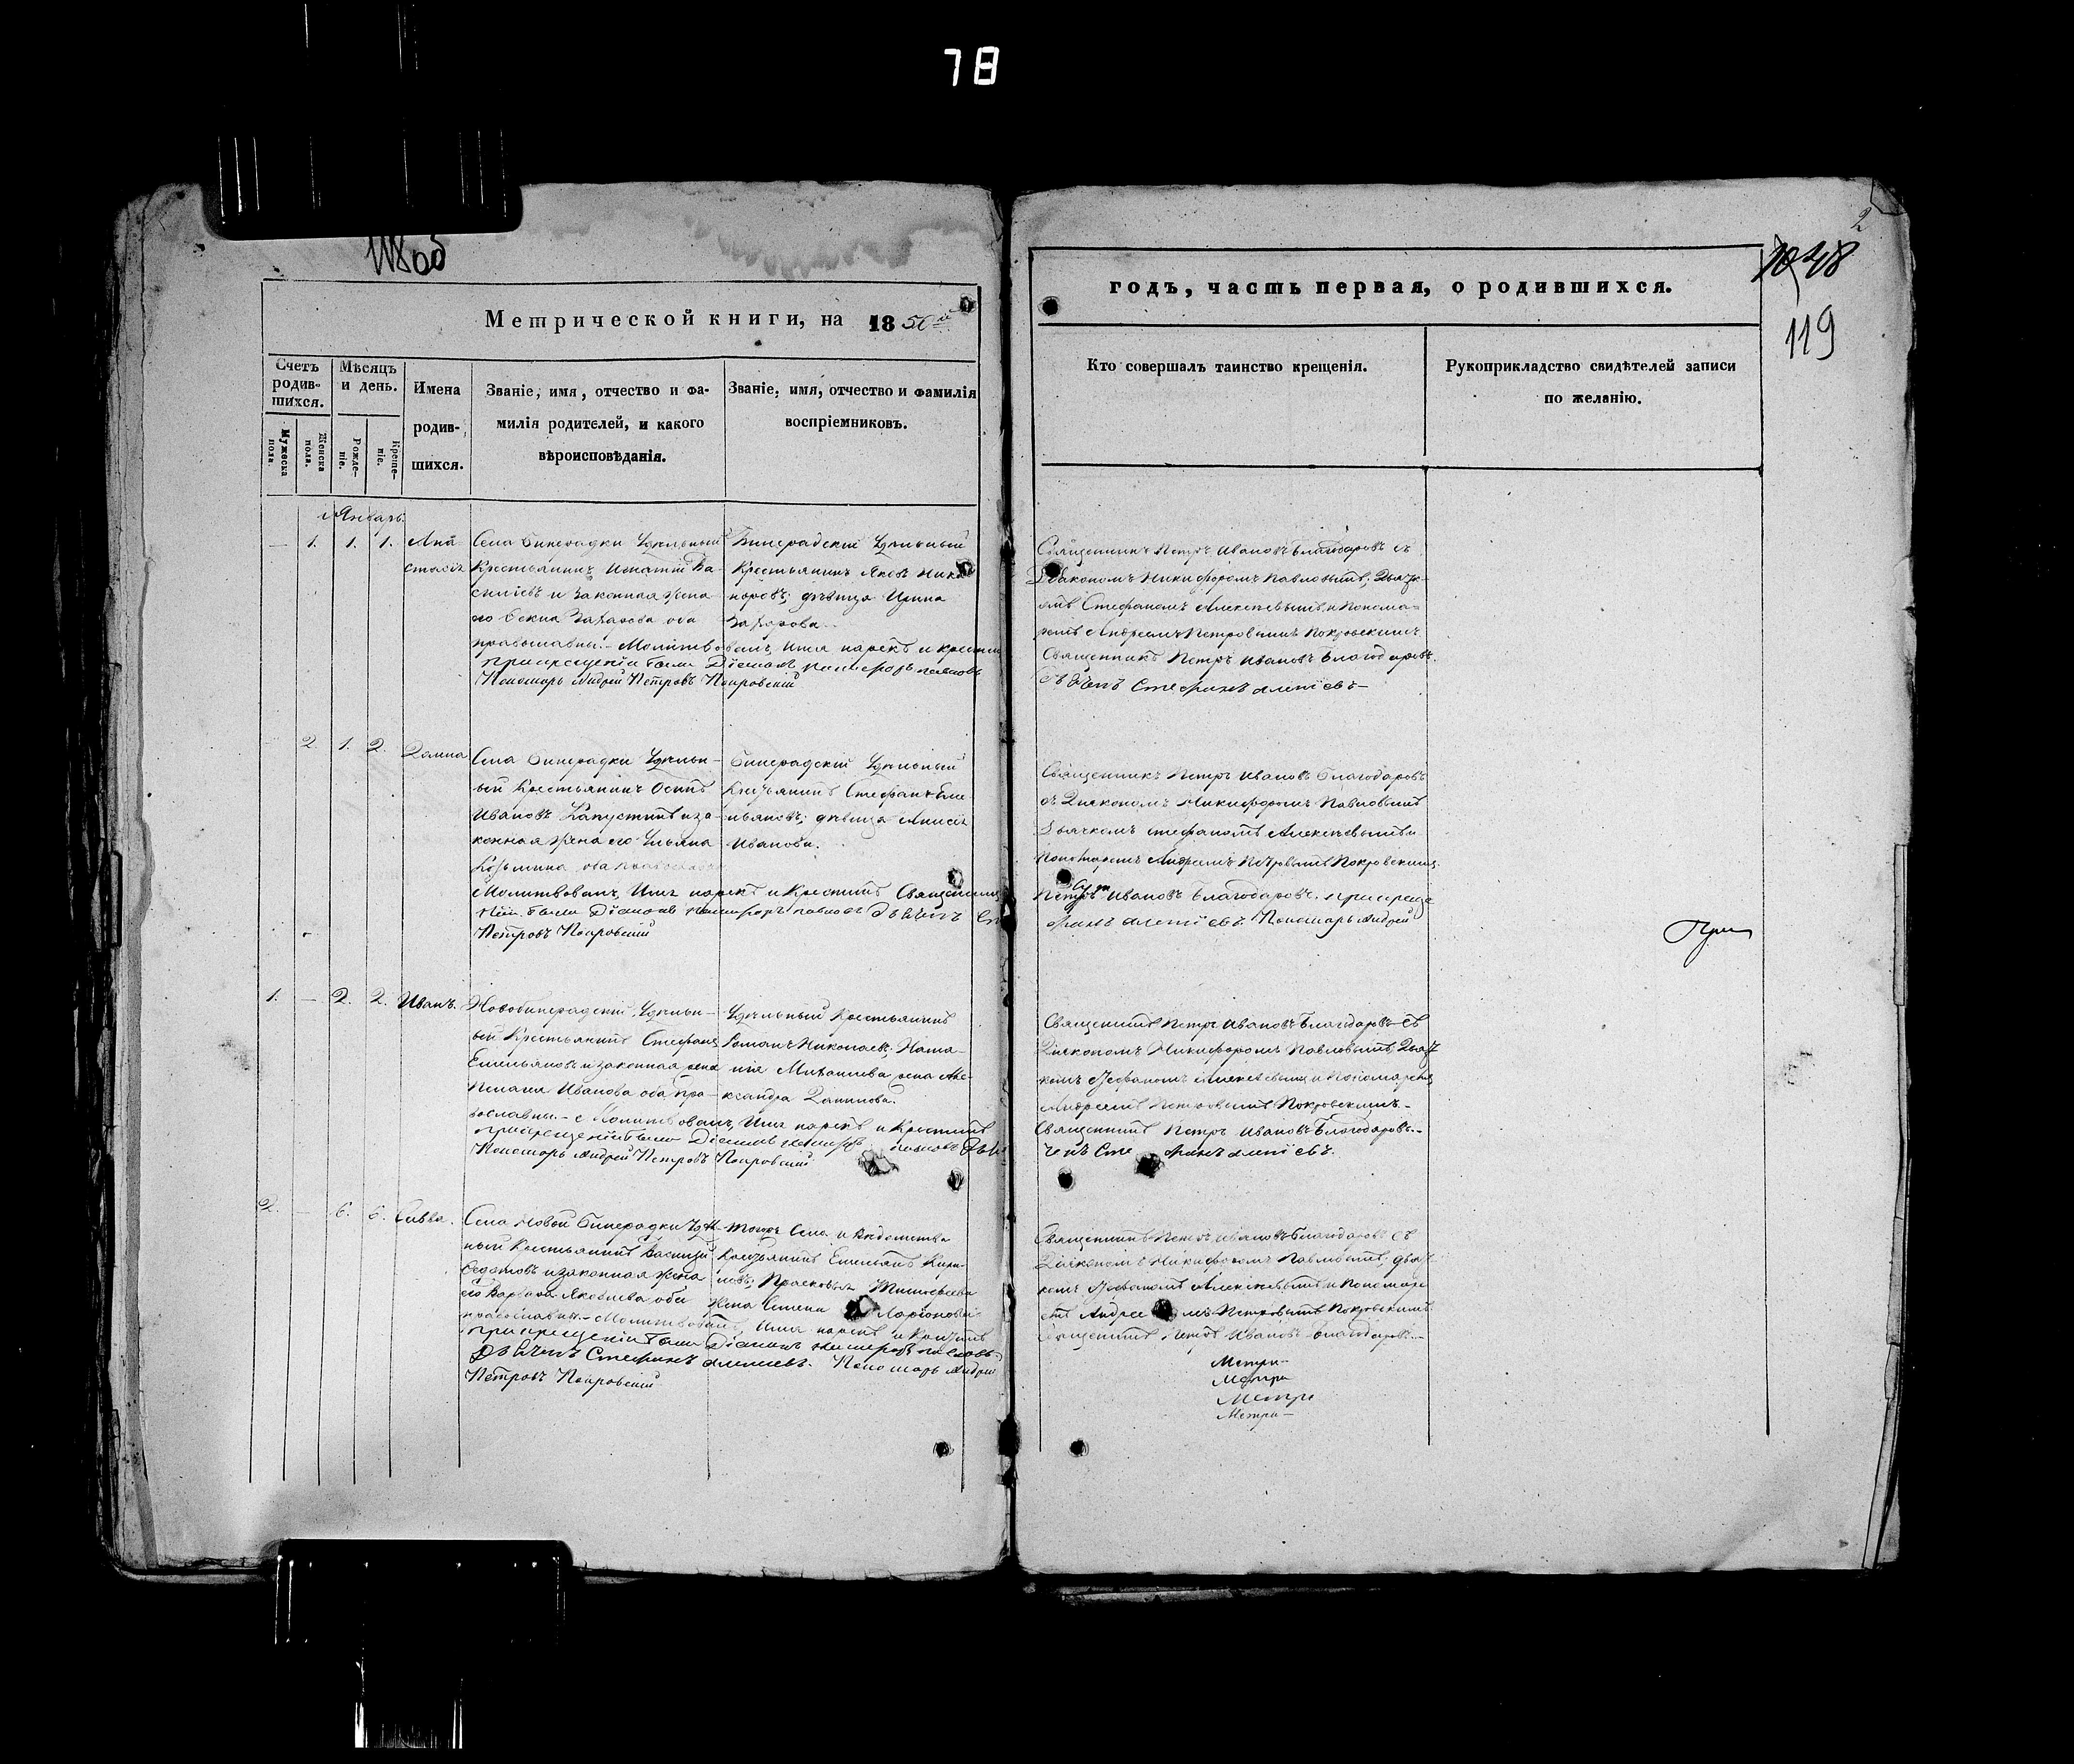 78
2
1048
119
Метрической книги, на 1850й
годъ, часть первая, о родившихся.
Счетъ родив-шихся.
Мужеска пола.
Женска пола.
Мѣсяцъ и день.
Рожде-ніе.
Креще-ніе.
Имена
родив-
шихся.
Званіе, имя, отчество и фа-
милія родителей, и какого
вѣроисповѣданія.
Званіе, имя, отчество и фамилія
воспріемниковъ.
Кто совершалъ таинство крещенія.
Рукоприкладство свидѣтелей записи
по желанію.
Январь.
— 1. 1. 1.
Ана-
стасія
Села Бинерадки Удѣльный
Крестьянинъ Игнатій Ва-
силіевъ и законная жена
его Захарова оба
православны. – Молитвовалъ, Имя нарекъ и крестилъ
при крещеніи были Діаконъ Никифоръ Павловъ
Пономарь Андрей Петровъ Покровскій
Бинерадскій Удѣльный
Крестьянинъ Яковъ Ника-
норовъ; дѣвица Ирина
Захарова.
Священникъ Петръ Ивановъ Благодаровъ съ
Діакономъ Никифоромъ Павловымъ; Дьяч-
омъ Стефаномъ Алексѣевымъ и Понома-
ремъ Андреемъ Петровымъ Покровскимъ
Священникъ Петръ Ивановъ Благодаровъ.
Стефанъ
— 2. 1. 2.
Домна
Села Бинерадки Удѣльн-
ый Крестьянинъ Осипъ
Ивановъ Капустинъ и за-
конная жена его Ульяна
Козьмина оба православны
Молитвовалъ, Имя нарекъ и Крестилъ Священникъ
были Діаконъ Никифоръ Павловъ
Петровъ Покровскій
Бинерадскій Удѣльный
Крестьянинъ Стефанъ Еме-
льяновъ; дѣвица Анисія
Иванова.
Священникъ Петръ Ивановъ Благодаровъ
съ Діакономъ Никифоромъ Павловымъ
Дьячкомъ Стефаномъ Алексѣевымъ и
Пономаремъ Андреемъ Петровымъ Покровскимъ.
Петръ Ивановъ Благодаровъ. при креще
Пономарь Андрей
1. — 2. 2.
Иванъ.
Новобинерадскій Удѣльн-
ый Крестьянинъ Стефанъ
Емельяновъ и законная жена
Иванова оба пра-
вославны. – Молитвовалъ, Имя нарекъ и Крестилъ
при крещеніи были Діаконъ Никифоръ Павловъ
Пономарь Андрей Петровъ Покровскій
Удѣльный Крестьянинъ
Романъ Николаевъ; Ната-
лія Михайлова жена Але-
ксандра Данилова.
Священникъ Петръ Ивановъ Благодаровъ съ
Діакономъ Никифоромъ Павловымъ, Дьяч-
комъ Стефаномъ Алексѣевымъ и Пономаремъ
Андреемъ Петровымъ Покровскимъ
Священникъ Петръ Ивановъ Благодаровъ.
2. — 6. 6.
Савва.
Села Новой Бинерадки Удѣль-
ный Крестьянинъ Василій
Федотовъ и законная жена
его Яковлева оба
православны. – Молитвовалъ, Имя нарекъ и Крестилъ
при крещеніи были Діаконъ Никифоръ Павловъ
Стефанъ Пономарь Андрей
Петровъ Покровскій
Тогожъ Села и Вѣдомства
Крестьянинъ Емельянъ Кири-
ловъ; Прасковья Тимофеева
Жена Семена Ларіонова
Священникъ Петръ Ивановъ Благодаровъ съ
Діакономъ Никифоромъ Павловымъ, Дьяч-
комъ Стефаномъ Алексѣевымъ и Пономаре
Андреемъ Петровымъ Покровскимъ
Священникъ Петръ Ивановъ Благодаровъ.
Метри-
Метри
Метри
Метри-